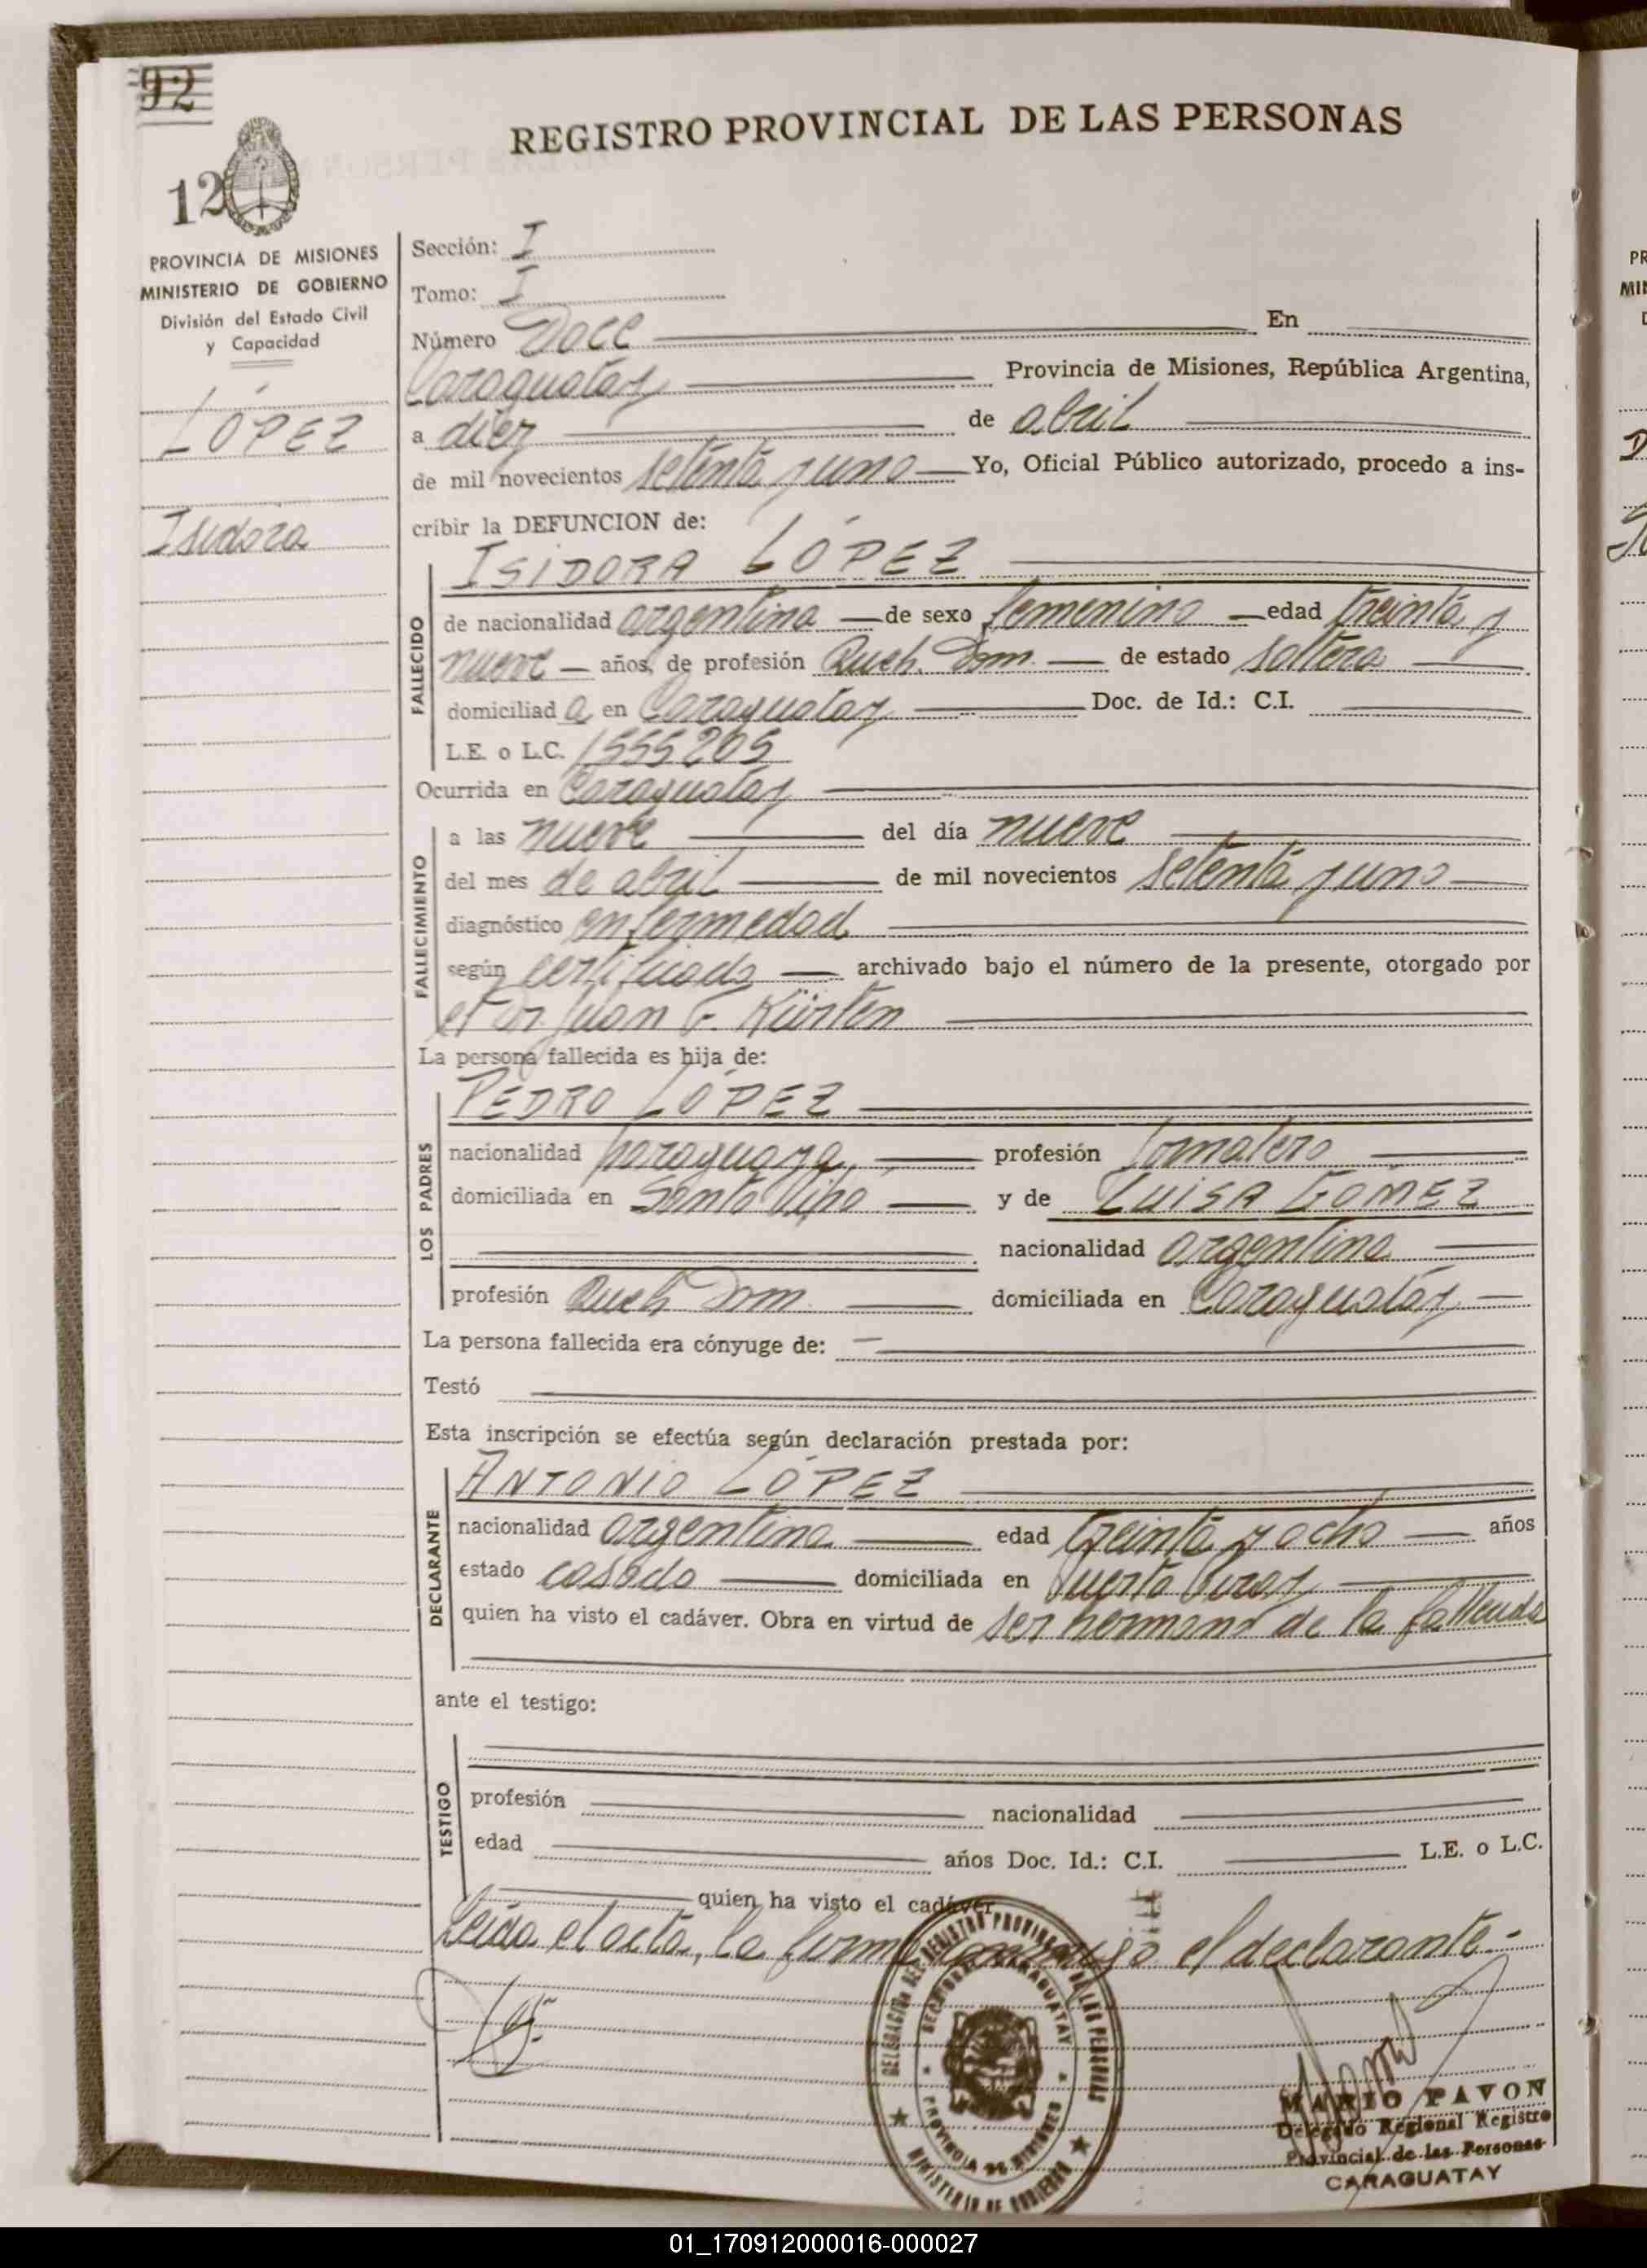 92
REGISTRO PROVINCIAL DE LAS PERSONAS
12
PROVINCIA DE MISIONES
MINISTERIO DE GOBIERNO
División del Estado Civil
y Capacidad
LÓPEZ
Isidora
Sección: I
Tomo: I
Número Doce En
Caraguatay Provincia de Misiones, República Argentina,
a diez de abril
de mil novecientos setenta y uno Yo, Oficial Público autorizado, procedo a ins-
cribir la DEFUNCION de:
ISIDORA LÓPEZ
FALLECIDO
de nacionalidad argentina de sexo femenino edad treinta y
nueve años, de profesión Queh. Dom. de estado soltera
domiciliad a en Caraguatay Doc. de Id.: C.I.
L.E. o L.C. 1555205
Ocurrida en Caraguatay
FALLECIMIENTO
a las nueve del día nueve
del mes de abril de mil novecientos setenta y uno
diagnóstico enfermedad
según certificado archivado bajo el número de la presente, otorgado por
el Dr Juan F. Kürten
La persona fallecida es hija de:
LOS PADRES
PEDRO LÓPEZ
nacionalidad paraguaya, profesión Jornalero
domiciliada en Santo Pipo y de LUISA GÓMEZ
nacionalidad argentina
profesión Queh Dom. domiciliada en Caraguatay
La persona fallecida era cónyuge de:
Testó
Esta inscripción se efectúa según declaración prestada por:
DECLARANTE
ANTONIO LÓPEZ
nacionalidad argentina edad treinta y ocho años
estado casado domiciliada en Puerto Piray
quien ha visto el cadáver. Obra en virtud de ser hermano de la fallecida
ante el testigo:
TESTIGO
profesión nacionalidad
edad años Doc. Id.: C.I. L.E. o L.C.
quien ha visto el cadáver
Leída el acta, la firma conmigo el declarante.-
DELEGACION DEL REGISTRO PROVINCIAL DE LAS PERSONAS
CARAGUATAY
PROVINCIA DE MISIONES
MINISTERIO DE GOBIERNO
MARIO PAVON
Delegado Regional Registro
Provincial de las Personas
CARAGUATAY
01_170912000016-000027